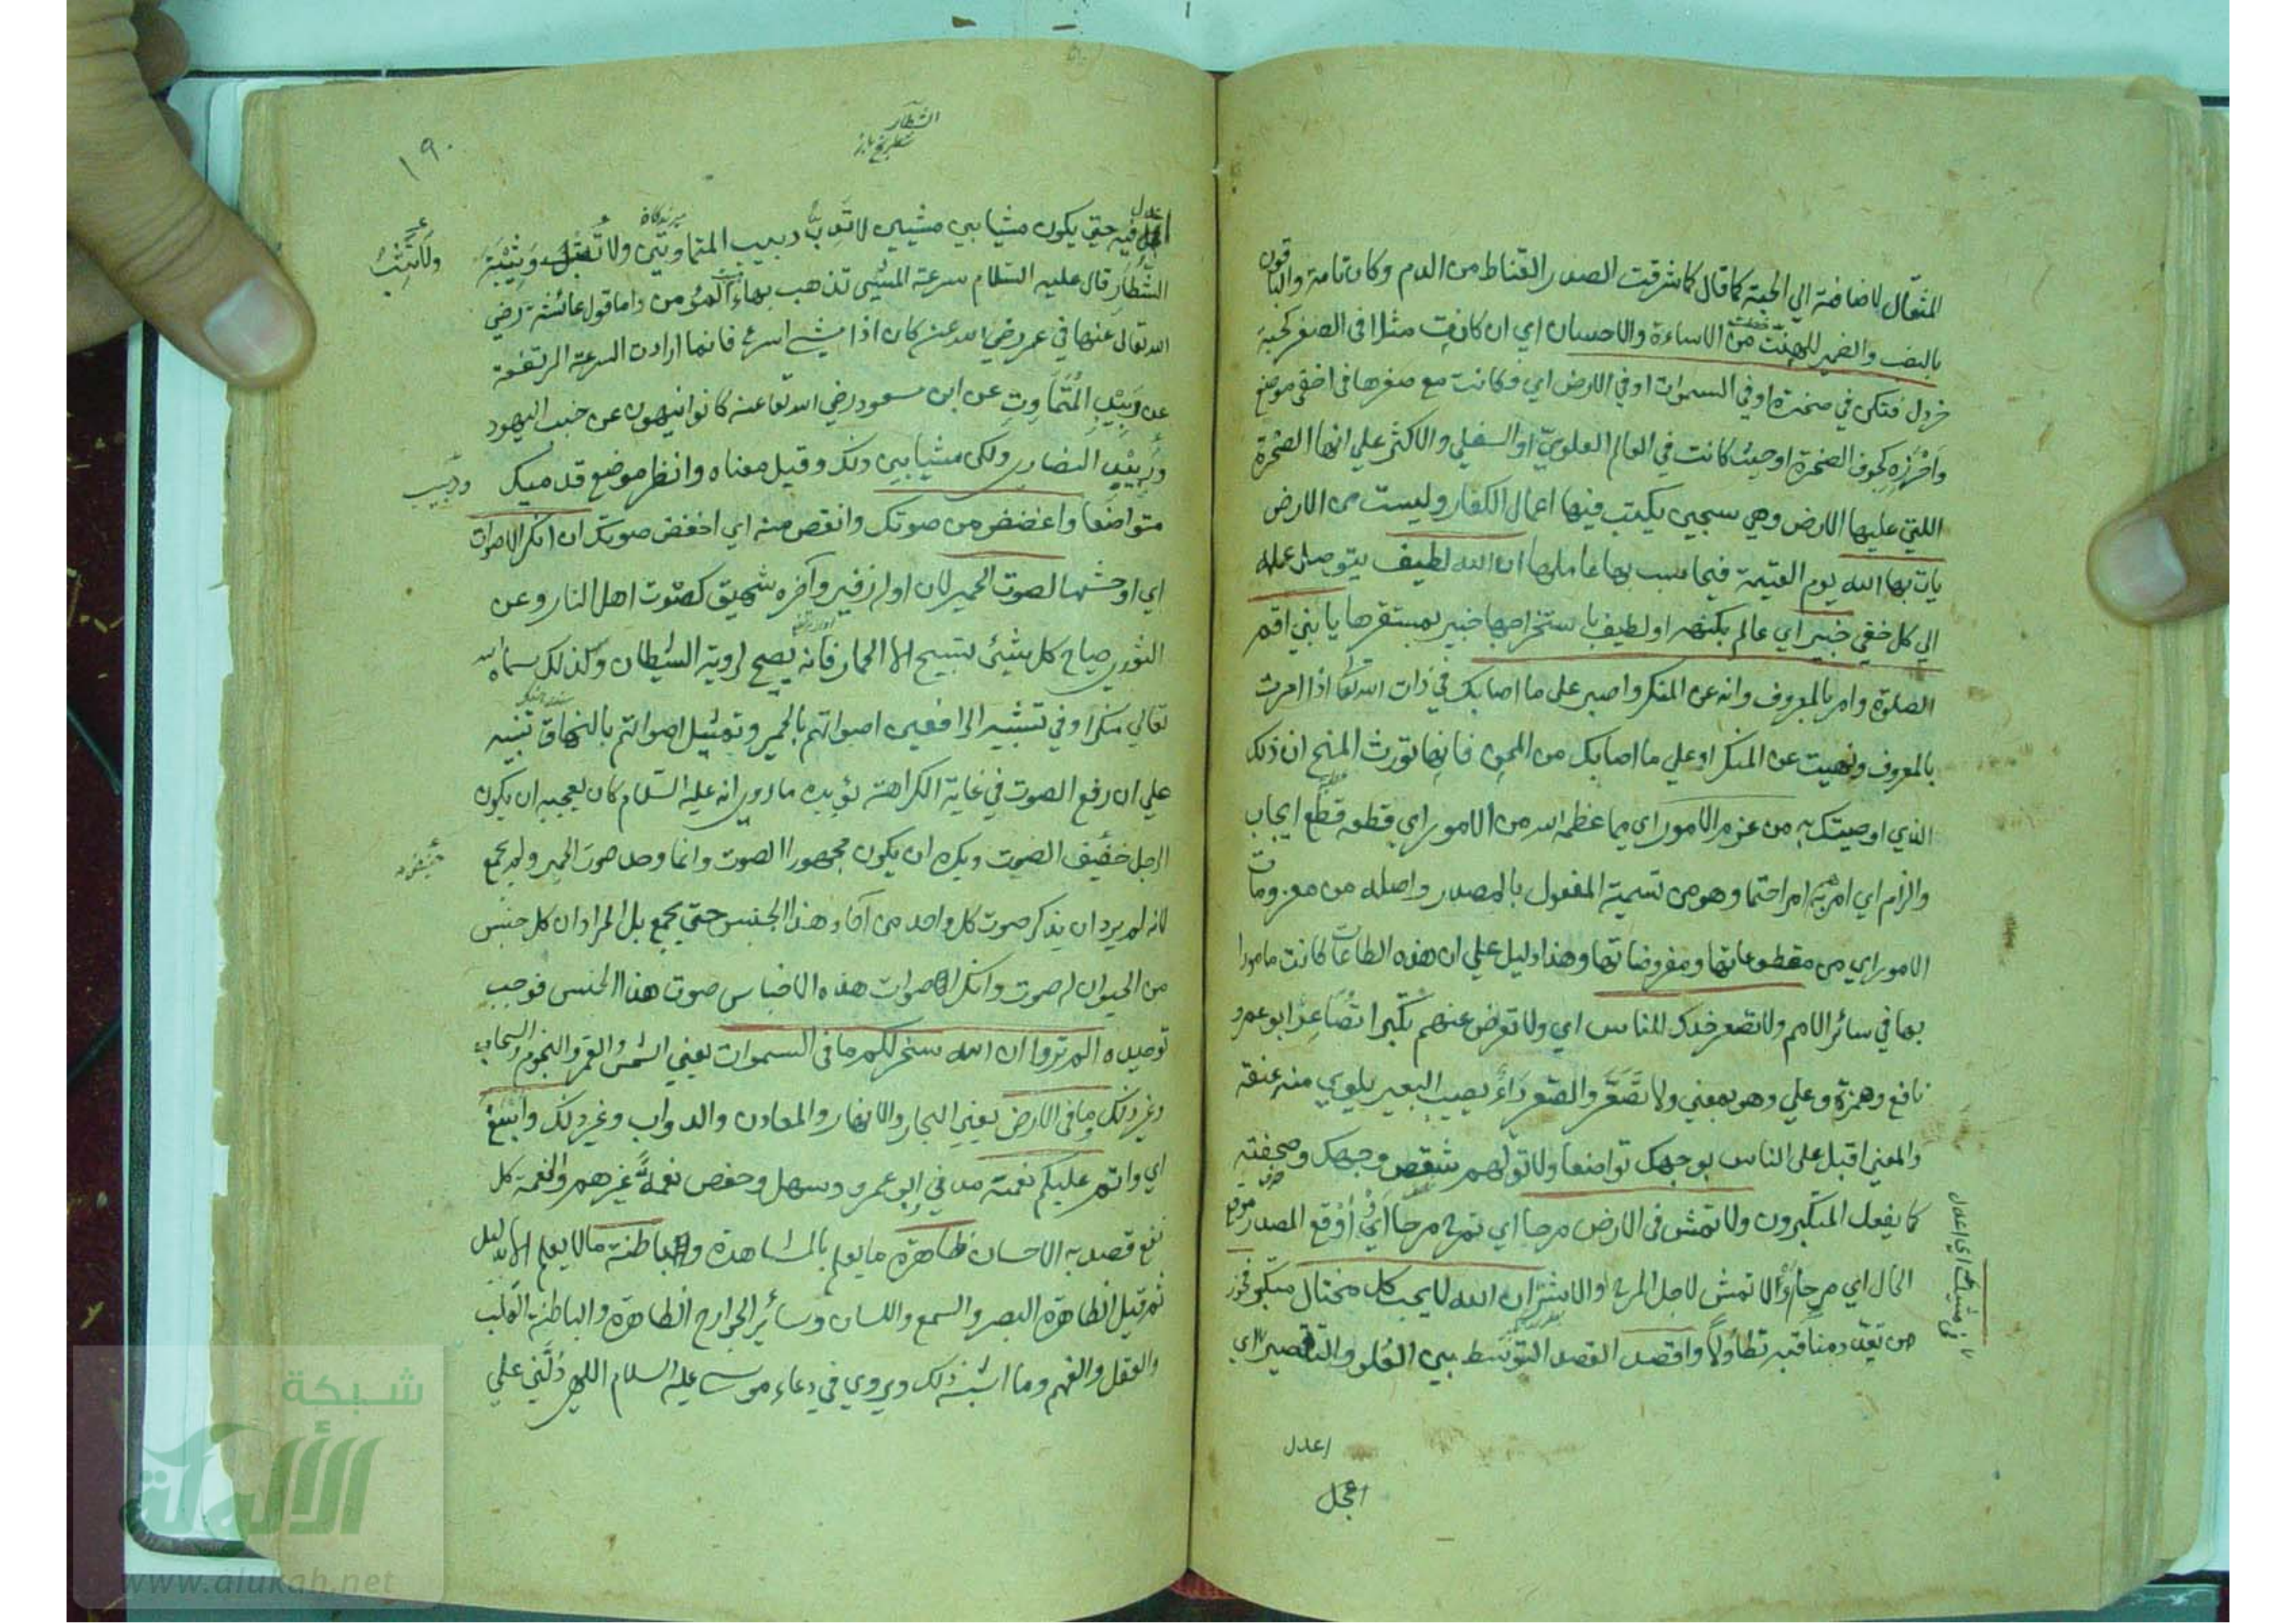 المثقال لاضافته الي الحبة كما قال كما شرقت الصدر القناط من الدم وكان تامة والباقون
بالنصب والضمير للهنة من الاساءة والاحسان اي ان كانت مثلا في الصغر كحبة
خردل فتكن في صخرة او في السموات او في الارض اي وكانت مع صغرها في اخفى موضع
واحرزه كجوف الصخرة او حيث كانت في العالم العلوي او السفلي والاكثر علي انها الصخرة
اللتي عليها الارض وهي سجين يكتب فيها اعمال الكفار وليست من الارض
يات بها الله يوم القيمة فيحاسب بها عاملها ان الله لطيف يتوصل علمه
الي كل خفي خبير اي عالم بكنهه او لطيف باستخراجها خبير بمستقرها يا بني اقم
الصلوة وامر بالمعروف وانه عن المنكر واصبر على ما اصابك في ذات الله تعا اذا امرت
بالمعروف ونهيت عن المنكر او علي ما اصابك من المحن فانها تورث المنح ان ذلك
الذي اوصيتك به من عزم الامور اي مما عظمه الله من الامور اي قطعه قطع ايجاب
والزام اي امر به امرا حتما وهو من تسمية المفعول بالمصدر واصله من معزومات
الامور اي من مقطوعاتها ومفروضاتها وهذا دليل علي ان هذه الطاعات كانت مامورا
بها في سائر الامم ولا تصعر خدك للناس اي ولا تعرض عنهم تكبرا تصاعر ابو عمرو
نافع وحمزة وعلي وهو بمعني ولا تصعر والصعر داء يصيب البعير يلوي منه عنقه
والمعني اقبل علي الناس بوجهك تواضعا ولا تولهم شق وجهك وصحفته
كما يفعل المتكبرون ولا تمش في الارض مرحا اي تمرح مرحا اي اوقع المصدر موقع
الحال اي مرحا او لا تمش لاجل المرح والاشر ان الله لا يحب كل مختال متكبر فخور
من تعدد مناقبه تطاولا واقصد القصد التوسط بين الغلو والتقصير اي
اعدل
اعجل
١٩٠
الشطار
اعدل فيه حتي يكون مشيا بين مشيين لا تدب دبيب المتماوتين ولا تثب وثيبة
ولا تثب
الشطار قال عليه السلام سرعة المشي تذهب بهاء المؤمن واما قول عائشة رضي
الله تعالى عنها في عمر رضي الله عنه كان اذا مشي اسرع فانما ارادت السرعة المرتفعة
عن دبيب المتماوت عن ابن مسعود رضي الله تعا عنه كانوا ينهون عن خبب اليهود
ودبيب النصاري ولكن مشيا بين ذلك وقيل معناه وانظر موضع قدميك
ودبيب
متواضعا واغضض من صوتك وانقص منه اي اخفض صوتك ان انكر الاصوات
اي اوحشها لصوت الحمير لان اوله زفير وآخره شهيق كصوت اهل النار وعن
الثوري صياح كل شيئ تسبيح الا الحمار فانه يصيح لروية الشيطان ولذلك سماه الله
تعالي منكرا وفي تشبيه الرافعين اصواتهم بالحمير وتمثيل اصواتهم بالنهاق تنبيه
علي ان رفع الصوت في غاية الكراهة يؤيده ما روي انه عليه السلام كان يعجبه ان يكون
الرجل خفيف الصوت ويكره ان يكون مجهور الصوت وانما وحد صوت الحمير ولم يجمع
لانه لم يرد ان يذكر صوت كل واحد من آحاد هذا الجنس حتي يجمع بل المراد ان كل جنس
من الحيوان له صوت وانكر اصوات هذه الاجناس صوت هذا الجنس فوجب
توحيده الم تروا ان الله سخر لكم ما في السموات يعني الشمس والقمر والنجوم والسحاب
وغير ذلك وما في الارض يعني البحار والانهار والمعادن والدواب وغير ذلك واسبغ
اي واتم عليكم نعمه مدني ابو عمرو وسهل وحفص نعمة غيرهم والنعمة كل
نفع قصد به الاحسان ظاهرة ما يعلم بالمشاهدة وباطنة ما لا يعلم الا بدليل
ثم قيل الظاهرة البصر والسمع واللسان وسائر الجوارح الظاهرة والباطنة القلب
والعقل والفهم وما اشبه ذلك ويروي في دعاء موسي عليه السلام اللهم دلني علي
شبكة
الألوكة
www.alukah.net